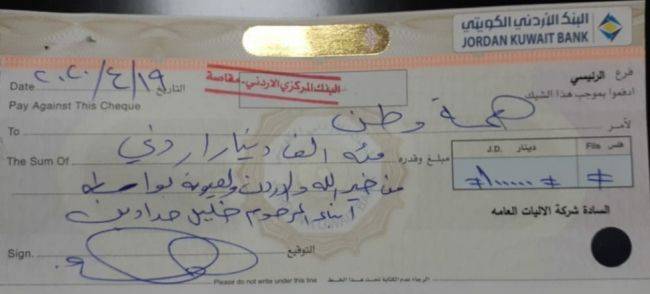 البنك الأردني الكويتي
JORDAN KUWAIT BANK
فرع الرئيسي
Date ٢٠٢٠/٤/١٩ التاريخ
البنك المركزي الاردني - مقاصة
ادفعوا بموجب هذا الشيك
Pay Against This Cheque
To همة وطن لأمر
The Sum Of مئة الف دينار اردني مبلغ وقدره
J.D. دينار Fils فلس
≠ ١٠٠٠٠٠ ≠ ≠
من خير الله والاردن وبواسطة
ابناء المرحوم خليل حدادين
السادة شركة الاليات العامه
Sign. التوقيع
Please do not write under this line الرجاء عدم الكتابة تحت هذا الخط